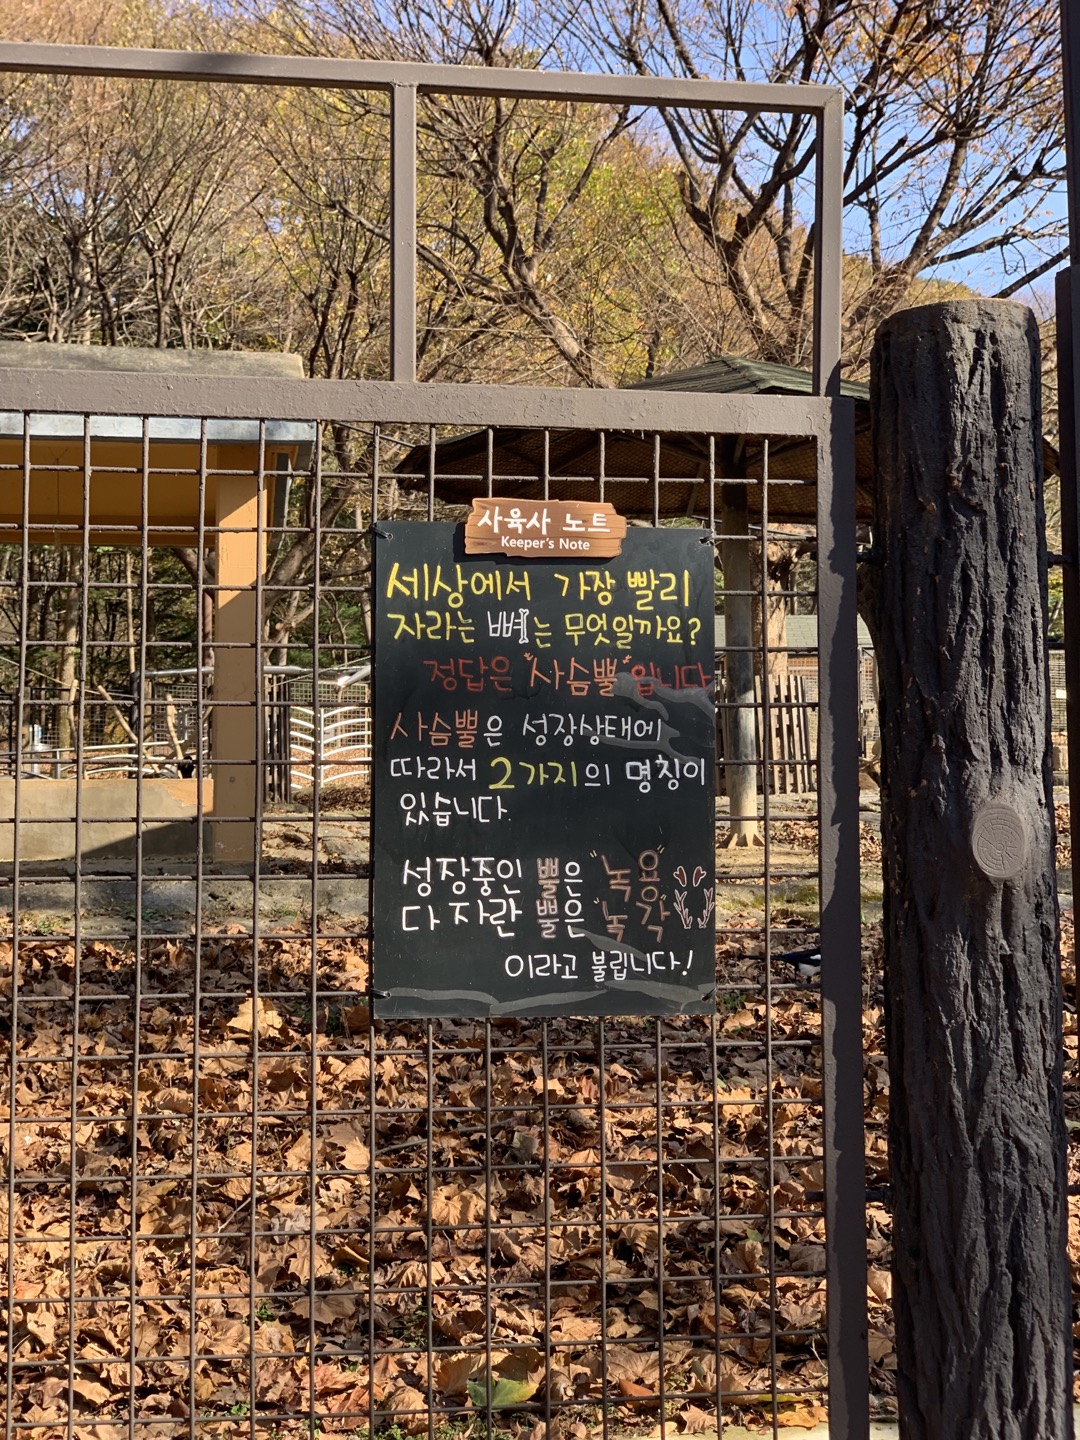 사육사 노트
Keeper's Note
세상에서 가장 빨리
자라는 뼈는 무엇일까요?
정답은 "사슴뿔" 입니다
사슴뿔은 성장상태에
따라서 2가지의 명칭이
있습니다.
성장중인 뿔은 "녹용"
다 자란 뿔은 "녹각"
이라고 불립니다!